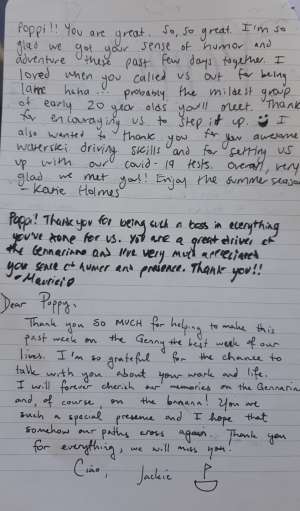 Poppi!! You are great. So, so great. I'm so
glad we got your sense of humor and
adventure these past few days together. I
loved when you called us out for being
lame haha... probably the mildest group
of early 20 year olds you'll meet. Thanks
for encouraging us to step it up. I
also wanted to thank you for your awesome
waterski driving skills and for setting us
up with our covid-19 tests. Overall, very
glad we met you! Enjoy the summer season
- Katie Holmes
Poppi! Thank you for being such a boss in everything
you've done for us. You are a great driver of
the Gennarino and I've very much appreciated
your sense of humor and presence. Thank you!!
- Mauricio
Dear Poppy,
Thank you SO MUCH for helping to make this
past week on the Genny the best week of our
lives. I'm so grateful for the chance to
talk with you about your work and life.
I will forever cherish our memories on the Gennarino
and, of course, on the banana! You are
such a special presence and I hope that
somehow our paths cross again. Thank you
for everything, we will miss you!
Ciao, Jackie